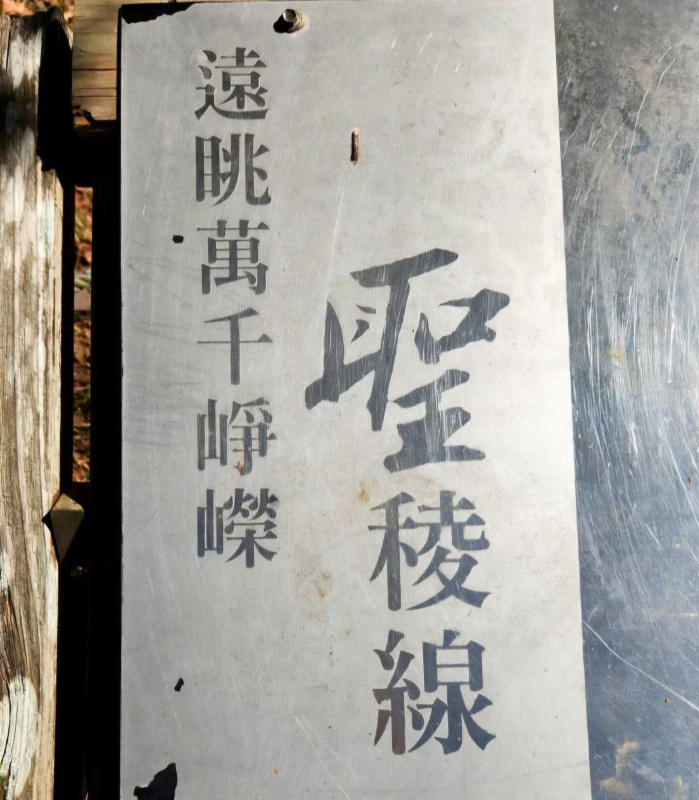 聖稜線
遠眺萬千崢嶸